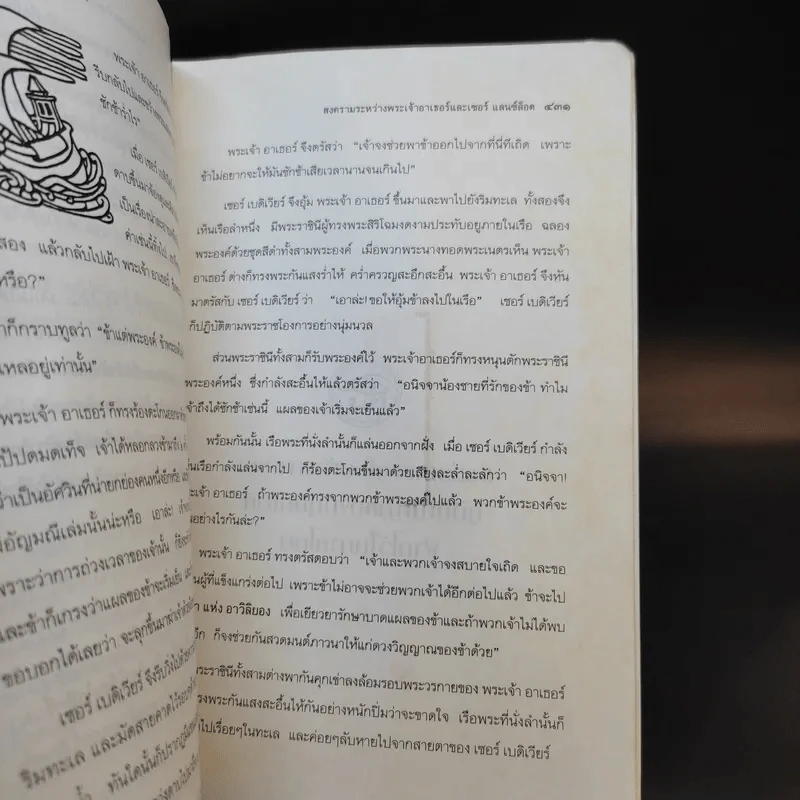 พระเจ้า อาเธอร์
รีบกลับไป
ชักช้าร่ำไร"
เมื่อ เซอร์
ดาบขึ้นมา
เป็นเรื่อง
คำเช่นนี้ทั้ง
สอง แล้วกลับไปเฝ้า พระเจ้า อาเธอร์
หรือ?"
ก็กราบทูลว่า "ข้าแต่พระองค์
เหลอยู่เท่านั้น"
พระเจ้า อาเธอร์ ก็ทรงร้องตะโกน
ปัปดมดเท็จ เจ้าได้หลอกลวงข้ามา
ว่าเป็นอัศวินที่น่ายกย่องคนหนึ่งอีกหรือ
อัญมณีเล่มนั้นน่ะหรือ เอาล่ะ!
เพราะว่าการถ่วงเวลาของเจ้านั้น
และข้าก็เกรงว่าแผลของข้าจะเริ่มเย็น
ขอบอกได้เลยว่า จะลุกขึ้นมา
เซอร์ เบดิเวียร์ จึงรีบวิ่งไป
ริมทะเล และมัดสายคาดไว้
ทันใดนั้นก็ปรากฏ
สงครามระหว่างพระเจ้าอาเธอร์และเซอร์ แลนซ์ล็อต ๔๓๑
พระเจ้า อาเธอร์ จึงตรัสว่า "เจ้าจงช่วยพาข้าออกไปจากที่นี่ทีเถิด เพราะ
ข้าไม่อยากจะให้มันชักช้าเสียเวลานานจนเกินไป"
เซอร์ เบดิเวียร์ จึงอุ้ม พระเจ้า อาเธอร์ ขึ้นมาและพาไปยังริมทะเล ทั้งสองจึง
เห็นเรือลำหนึ่ง มีพระราชินีผู้ทรงพระสิริโฉมงดงามประทับอยู่ภายในเรือ ฉลอง
พระองค์ด้วยชุดสีดำทั้งสามพระองค์ เมื่อพระนางทอดพระเนตรเห็น พระเจ้า
อาเธอร์ ต่างก็ทรงพระกันแสงร่ำไห้ คร่ำครวญสะอึกสะอื้น พระเจ้า อาเธอร์ จึงหัน
มาตรัสกับ เซอร์ เบดิเวียร์ ว่า "เอาล่ะ! ขอให้อุ้มข้าลงไปในเรือ" เซอร์ เบดิเวียร์
ก็ปฏิบัติตามพระราชโองการอย่างนุ่มนวล
ส่วนพระราชินีทั้งสามก็รับพระองค์ไว้ พระเจ้าอาเธอร์ก็ทรงหนุนตักพระราชินี
พระองค์หนึ่ง ซึ่งกำลังสะอื้นไห้แล้วตรัสว่า "อนิจจาน้องชายที่รักของข้า ทำไม
เจ้าถึงได้ชักช้าเช่นนี้ แผลของเจ้าเริ่มจะเย็นแล้ว"
พร้อมกันนั้น เรือพระที่นั่งลำนั้นก็แล่นออกจากฝั่ง เมื่อ เซอร์ เบดิเวียร์ กำลัง
เห็นเรือกำลังแล่นจากไป ก็ร้องตะโกนขึ้นมาด้วยเสียงละล่ำละลักว่า "อนิจจา!
พระเจ้า อาเธอร์ ถ้าพระองค์ทรงจากพวกข้าพระองค์ไปแล้ว พวกข้าพระองค์จะ
อย่างไรกันล่ะ?"
พระเจ้า อาเธอร์ ทรงตรัสตอบว่า "เจ้าและพวกเจ้าจงสบายใจเถิด และขอ
เป็นผู้ที่แข็งแกร่งต่อไป เพราะข้าไม่อาจจะช่วยพวกเจ้าได้อีกต่อไปแล้ว ข้าจะไป
แห่ง อาวิลิยอง เพื่อเยียวยารักษาบาดแผลของข้าและถ้าพวกเจ้าไม่ได้พบ
อีก ก็จงช่วยกันสวดมนต์ภาวนาให้แก่ดวงวิญญาณของข้าด้วย"
พระราชินีทั้งสามต่างพากันคุกเข่าลงล้อมรอบพระวรกายของ พระเจ้า อาเธอร์
ทรงพระกันแสงสะอื้นไห้กันอย่างหนักปิ่มว่าจะขาดใจ เรือพระที่นั่งลำนั้นก็
ไปเรื่อยๆในทะเล และค่อยๆลับหายไปจากสายตาของ เซอร์ เบดิเวียร์